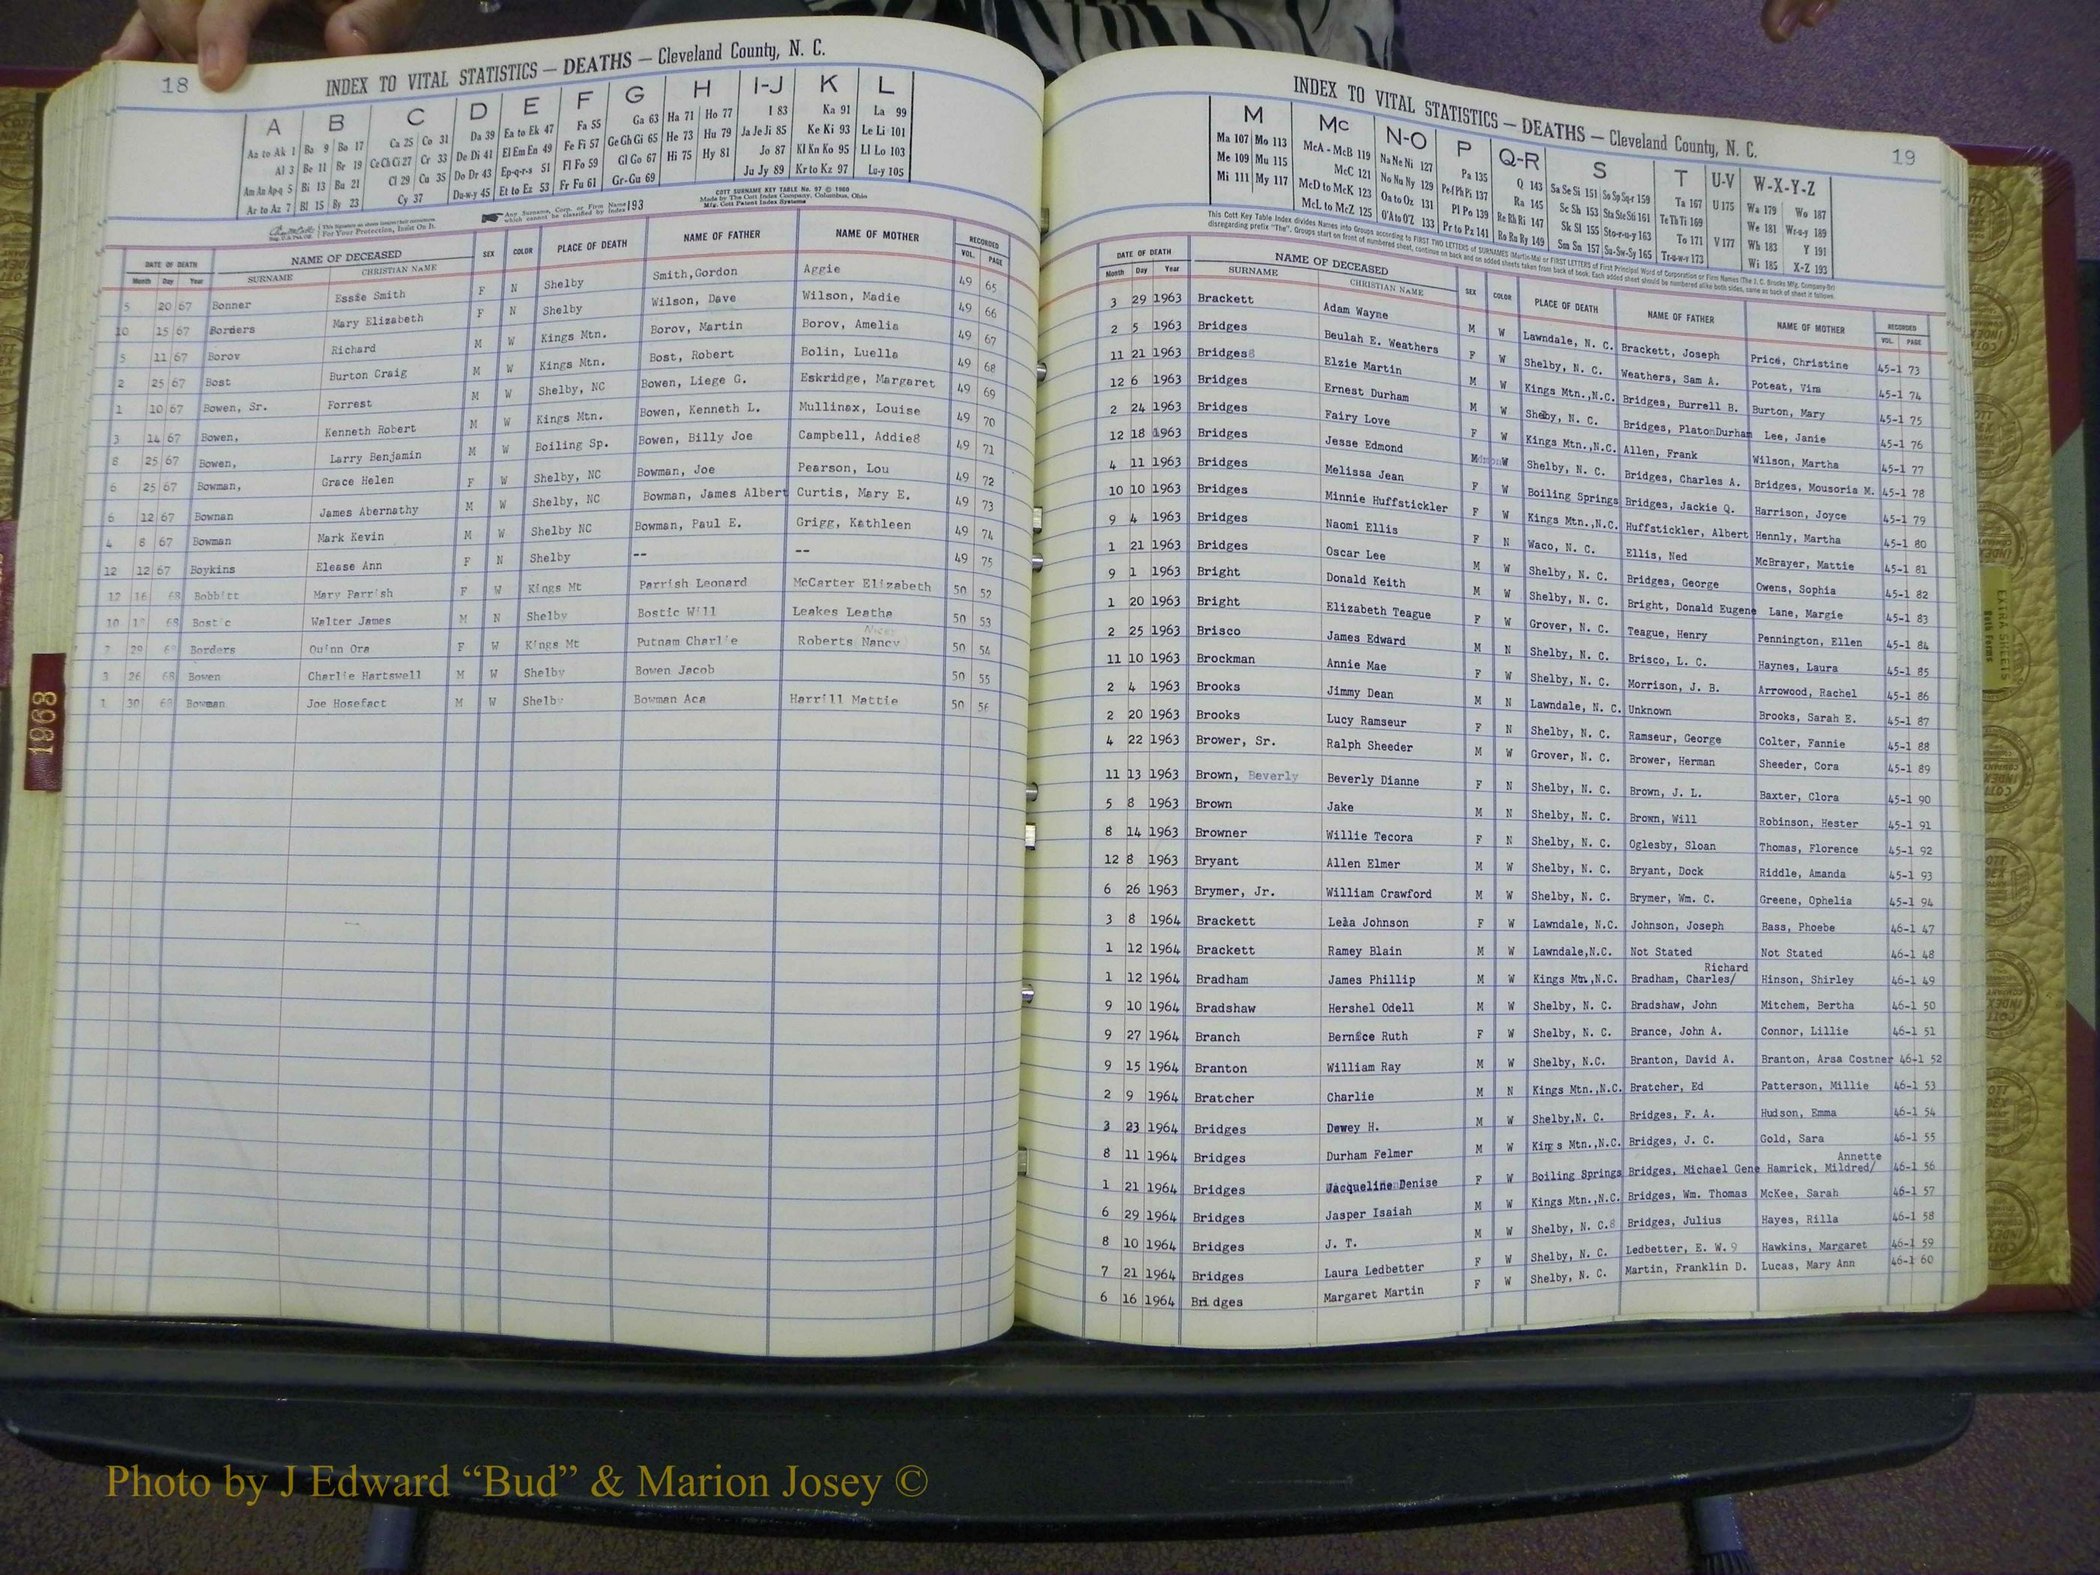 18
INDEX TO VITAL STATISTICS — DEATHS — Cleveland County, N. C.
A B C D E F G H I-J K L
Aa to Ak 1 Ba 9 Bo 17 Ca 25 Co 31 Da 39 Ea to Ek 47 Fa 55 Ga 63 Ha 71 Ho 77 I 83 Ka 91 La 99
Al 3 Be 11 Br 19 Ce Ch Ci 27 Cr 33 De Di 41 El Em En 49 Fe Fi 57 Ge Gh Gi 65 He 73 Hu 79 Ja Je Ji 85 Ke Ki 93 Le Li 101
Am An Ap-q 5 Bi 13 Bu 21 Cl 29 Cu 35 Do Dr 43 Ep-q-r-s 51 Fl Fo 59 Gl Go 67 Hi 75 Hy 81 Jo 87 Kl Kn Ko 95 Ll Lo 103
Ar to Az 7 Bl 15 By 23 Cy 37 Du-w-y 45 Et to Ez 53 Fr Fu 61 Gr-Gu 69 Ju Jy 89 Kr to Kz 97 Lu-y 105
COTT SURNAME KEY TABLE No. 97 © 1960
Made by The Cott Index Company, Columbus, Ohio
Mfg. Cott Patent Index Systems
Any Surname, Corp. or Firm Name which cannot be classified by Index 193
For Your Protection, Insist On It.
DATE OF DEATH NAME OF DECEASED SEX COLOR PLACE OF DEATH NAME OF FATHER NAME OF MOTHER RECORDED
Month Day Year SURNAME CHRISTIAN NAME VOL. PAGE
5 20 67 Bonner Essie Smith F N Shelby Smith,Gordon Aggie 49 65
10 15 67 Borders Mary Elizabeth F N Shelby Wilson, Dave Wilson, Madie 49 66
5 11 67 Borov Richard M W Kings Mtn. Borov, Martin Borov, Amelia 49 67
2 25 67 Bost Burton Craig M W Kings Mtn. Bost, Robert Bolin, Luella 49 68
1 10 67 Bowen, Sr. Forrest M W Shelby, NC Bowen, Liege G. Eskridge, Margaret 49 69
3 14 67 Bowen, Kenneth Robert M W Kings Mtn. Bowen, Kenneth L. Mullinax, Louise 49 70
8 25 67 Bowen, Larry Benjamin M W Boiling Sp. Bowen, Billy Joe Campbell, Addie8 49 71
6 25 67 Bowman, Grace Helen F W Shelby, NC Bowman, Joe Pearson, Lou 49 72
6 12 67 Bownan James Abernathy M W Shelby, NC Bowman, James Albert Curtis, Mary E. 49 73
4 8 67 Bowman Mark Kevin M W Shelby NC Bowman, Paul E. Grigg, Kathleen 49 74
12 12 67 Boykins Elease Ann F N Shelby -- -- 49 75
12 16 68 Bobbitt Mary Parrish F W Kings Mt Parrish Leonard McCarter Elizabeth 50 52
10 68 Bostic Walter James M N Shelby Bostic Will Leakes Leatha 50 53
29 68 Borders Quinn Ora F W Kings Mt Putnam Charlie Roberts Nancy 50 54
3 26 68 Bowen Charlie Hartswell M W Shelby Bowen Jacob 50 55
1 30 68 Bowman Joe Hosefact M W Shelby Bowman Aca Harrill Mattie 50 56
1968
19
INDEX TO VITAL STATISTICS — DEATHS — Cleveland County, N. C.
M Mc N-O P Q-R S T U-V W-X-Y-Z
Ma 107 Mo 113 McA - McB 119 Na Ne Ni 127 Pa 135 Q 143 Sa Se Si 151 So Sp Sq-r 159 Ta 167 U 175 Wa 179 Wo 187
Me 109 Mu 115 McC 121 No Nu Ny 129 Pe-f Ph Pi 137 Ra 145 Sc Sh 153 Sta Ste Sti 161 Te Th Ti 169 We 181 Wr-u-y 189
Mi 111 My 117 McD to McK 123 Oa to Oz 131 Pl Po 139 Re Rh Ri 147 Sk Sl 155 Sto-r-u-y 163 To 171 V 177 Wh 183 Y 191
McL to McZ 125 O'A to O'Z 133 Pr to Pz 141 Ro Ru Ry 149 Sm Sn 157 Su-Sw-Sy 165 Tr-u-w-y 173 Wi 185 X-Z 193
This Cott Key Table Index divides Names into Groups according to FIRST TWO LETTERS of SURNAMES (Martin-Ma) or FIRST LETTERS of First Principal Word of Corporation or Firm Names (The J. C. Brooks Mfg. Company-Br)
disregarding prefix "The". Groups start on front of numbered sheet, continue on back and on added sheets taken from back of book. Each added sheet should be numbered alike both sides, same as back of sheet it follows.
DATE OF DEATH NAME OF DECEASED SEX COLOR PLACE OF DEATH NAME OF FATHER NAME OF MOTHER RECORDED
Month Day Year SURNAME CHRISTIAN NAME VOL. PAGE
3 29 1963 Brackett Adam Wayne M W Lawndale, N. C. Brackett, Joseph Price, Christine 45-1 73
2 5 1963 Bridges Beulah E. Weathers F W Shelby, N. C. Weathers, Sam A. Poteat, Vira 45-1 74
11 21 1963 Bridges Elzie Martin M W Kings Mtn.,N.C. Bridges, Burrell B. Burton, Mary 45-1 75
12 6 1963 Bridges Ernest Durham M W Shelby, N. C. Bridges, Platon Durham Lee, Janie 45-1 76
2 24 1963 Bridges Fairy Love F W Kings Mtn.,N.C. Allen, Frank Wilson, Martha 45-1 77
12 18 1963 Bridges Jesse Edmond M W Shelby, N. C. Bridges, Charles A. Bridges, Mousoria M. 45-1 78
4 11 1963 Bridges Melissa Jean F W Boiling Springs Bridges, Jackie Q. Harrison, Joyce 45-1 79
10 10 1963 Bridges Minnie Huffstickler F W Kings Mtn.,N.C. Huffstickler, Albert Hennly, Martha 45-1 80
9 4 1963 Bridges Naomi Ellis F N Waco, N. C. Ellis, Ned McBrayer, Mattie 45-1 81
1 21 1963 Bridges Oscar Lee M W Shelby, N. C. Bridges, George Owens, Sophia 45-1 82
9 1 1963 Bright Donald Keith M W Shelby, N. C. Bright, Donald Eugene Lane, Margie 45-1 83
1 20 1963 Bright Elizabeth Teague F W Grover, N. C. Teague, Henry Pennington, Ellen 45-1 84
2 25 1963 Brisco James Edward M N Shelby, N. C. Brisco, L. C. Haynes, Laura 45-1 85
11 10 1963 Brockman Annie Mae F W Shelby, N. C. Morrison, J. B. Arrowood, Rachel 45-1 86
2 4 1963 Brooks Jimmy Dean M N Lawndale, N. C. Unknown Brooks, Sarah E. 45-1 87
2 20 1963 Brooks Lucy Ramseur F N Shelby, N. C. Ramseur, George Colter, Fannie 45-1 88
4 22 1963 Brower, Sr. Ralph Sheeder M W Grover, N. C. Brower, Herman Sheeder, Cora 45-1 89
11 13 1963 Brown, Beverly Beverly Dianne F N Shelby, N. C. Brown, J. L. Baxter, Clora 45-1 90
5 8 1963 Brown Jake M N Shelby, N. C. Brown, Will Robinson, Hester 45-1 91
8 14 1963 Browner Willie Tecora F N Shelby, N. C. Oglesby, Sloan Thomas, Florence 45-1 92
12 8 1963 Bryant Allen Elmer M W Shelby, N. C. Bryant, Dock Riddle, Amanda 45-1 93
6 26 1963 Brymer, Jr. William Crawford M W Shelby, N. C. Brymer, Wm. C. Greene, Ophelia 45-1 94
3 8 1964 Brackett Lela Johnson F W Lawndale, N.C. Johnson, Joseph Bass, Phoebe 46-1 47
1 12 1964 Brackett Ramey Blain M W Lawndale,N.C. Not Stated Not Stated 46-1 48
1 12 1964 Bradham James Phillip M W Kings Mtn.,N.C. Bradham, Charles/ Richard Hinson, Shirley 46-1 49
9 10 1964 Bradshaw Hershel Odell M W Shelby, N. C. Bradshaw, John Mitchem, Bertha 46-1 50
9 27 1964 Branch Bernice Ruth F W Shelby, N. C. Brance, John A. Connor, Lillie 46-1 51
9 15 1964 Branton William Ray M W Shelby, N.C. Branton, David A. Branton, Arsa Costner 46-1 52
2 9 1964 Bratcher Charlie M N Kings Mtn.,N.C. Bratcher, Ed Patterson, Millie 46-1 53
3 23 1964 Bridges Dewey H. M W Shelby,N. C. Bridges, F. A. Hudson, Emma 46-1 54
8 11 1964 Bridges Durham Felmer M W Kings Mtn.,N.C. Bridges, J. C. Gold, Sara 46-1 55
1 21 1964 Bridges Jacqueline Denise F W Boiling Springs Bridges, Michael Gene Hamrick, Mildred/ Annette 46-1 56
6 29 1964 Bridges Jasper Isaiah M W Kings Mtn.,N.C. Bridges, Wm. Thomas McKee, Sarah 46-1 57
8 10 1964 Bridges J. T. M W Shelby, N. C.8 Bridges, Julius Hayes, Rilla 46-1 58
7 21 1964 Bridges Laura Ledbetter F W Shelby, N. C. Ledbetter, E. W.9 Hawkins, Margaret 46-1 59
6 16 1964 Bridges Margaret Martin F W Shelby, N. C. Martin, Franklin D. Lucas, Mary Ann 46-1 60
EXTRA SHEETS
Photo by J Edward “Bud” & Marion Josey ©